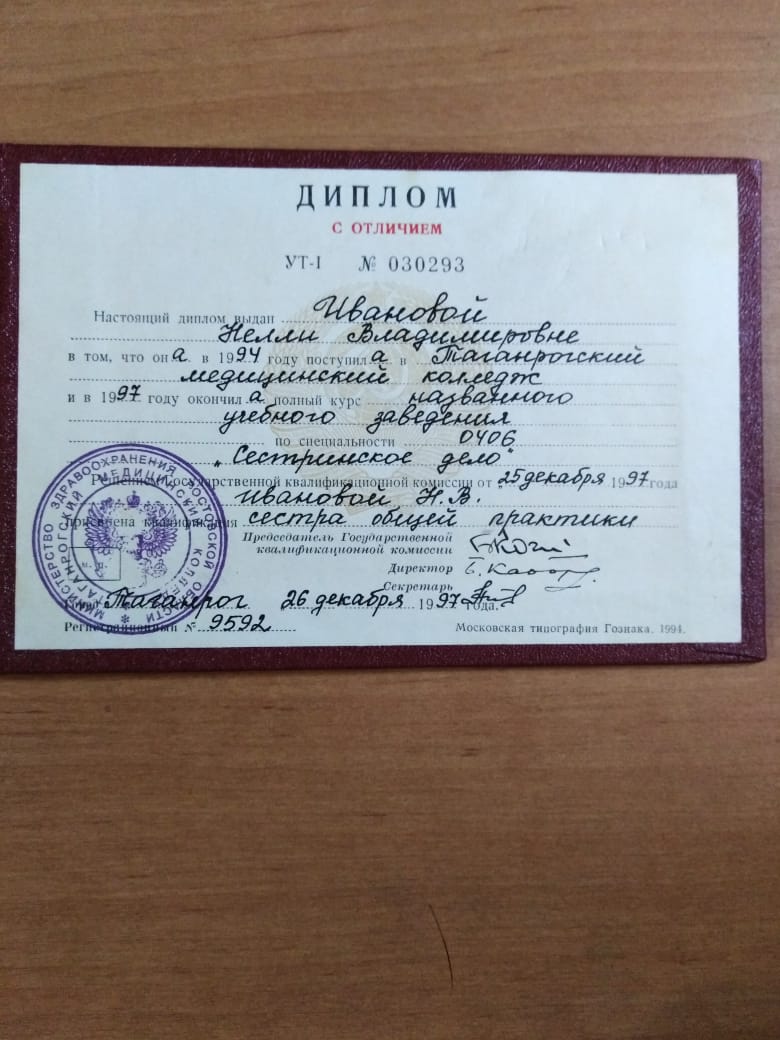 ДИПЛОМ
С ОТЛИЧИЕМ
УТ-I № 030293
Настоящий диплом выдан Ивановой
Нелли Владимировне
в том, что она в 1994 году поступила в Таганрогский
медицинский колледж
и в 1997 году окончила полный курс названного
учебного заведения
по специальности 0406
"Сестринское дело"
Решением Государственной квалификационной комиссии от 25 декабря 1997 года
Ивановой Н.В.
присвоена квалификация сестра общей практики
Председатель Государственной
квалификационной комиссии
Директор
Секретарь
Город Таганрог 26 декабря 1997 года.
Регистрационный № 9592
Московская типография Гознака. 1994.
МИНИСТЕРСТВО ЗДРАВООХРАНЕНИЯ РОСТОВСКОЙ ОБЛАСТИ
ТАГАНРОГСКИЙ МЕДИЦИНСКИЙ КОЛЛЕДЖ